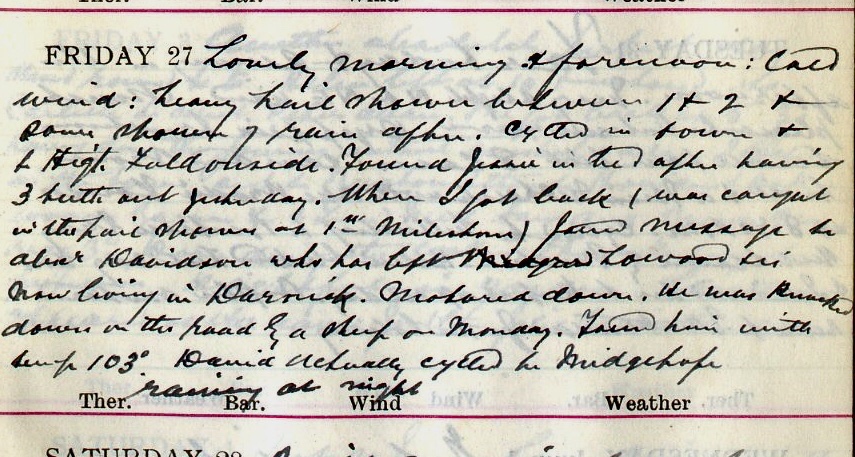 Ther. Bar. Wind Weather
FRIDAY 27 Lovely morning & forenoon : Cold
wind : heavy hail shower between 1 & 2 &
some showers of rain after. Cycled in town &
to High Faldonside. Found Jessie in bed after having
3 teeth out yesterday. When I got back (was caught
in the hail shower at 1st Milestone) found message to
Davidson who has left Lowood &is
now living in Darnick. Motored down. He was knocked
down on the road by a sheep on Monday. Found him with
temp 103°. David actually cycled to Midgehope
raining at night
Ther. Bar. Wind Weather
SATURDAY 28